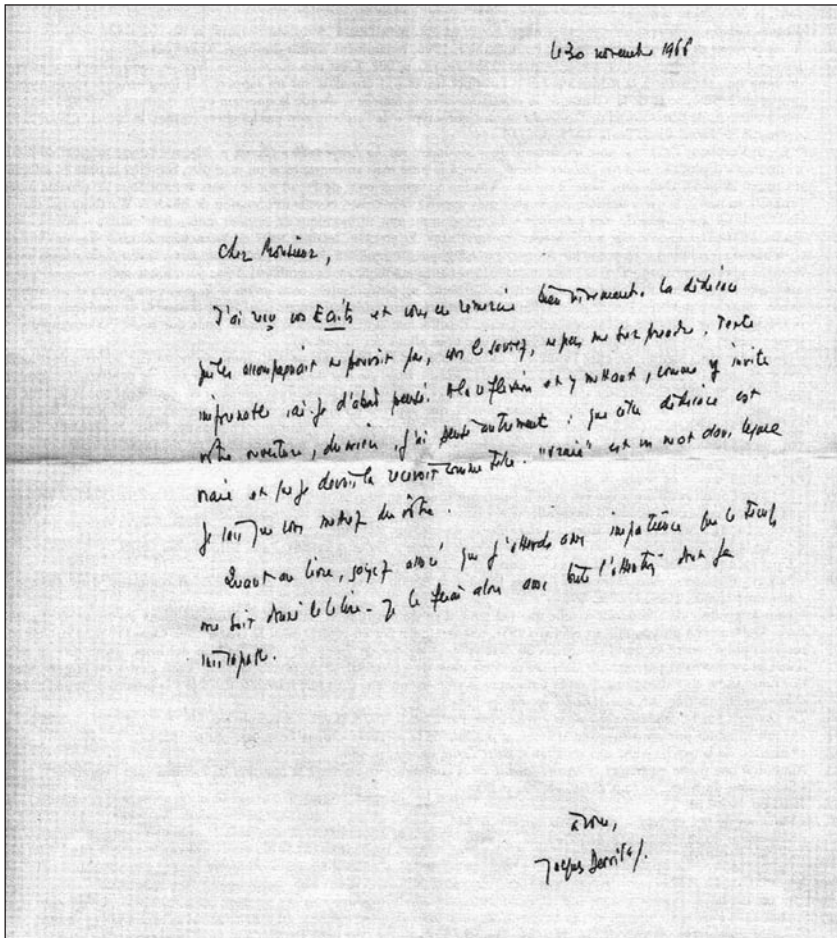 le 30 novembre 1966
Cher Monsieur,
J'ai reçu vos Ecrits et vous en remercie bien vivement. La dédicace
qui les accompagnait ne pouvait pas, vous le savez, ne pas me surprendre. Texte
imprenable, ai-je d'abord pensé. A la réflexion et y mettant, comme y invite
votre ouverture, du mien, j'ai pensé autrement : que cette dédicace est
vraie et que je devais la recevoir comme telle. "vraie" est un mot dans lequel
je sais que vous mettez du vôtre.
Quant au livre, soyez assuré que j'attends avec impatience que le temps
me soit donné de le lire - Je le ferai alors avec toute l'attention dont je
suis capable.
à vous,
Jacques Derrida.